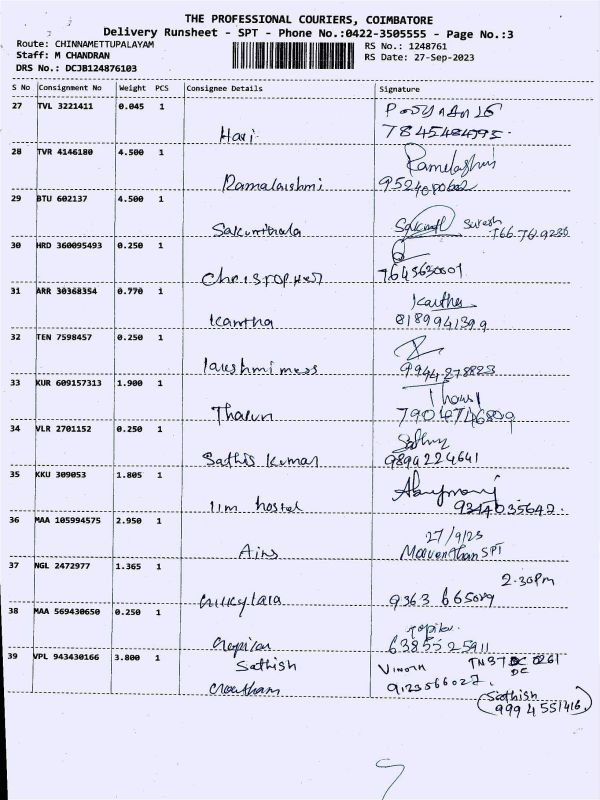 THE PROFESSIONAL COURIERS, COIMBATORE
Delivery Runsheet - SPT - Phone No.:0422-3505555 - Page No.:3
Route: CHINNAMETTUPALAYAM
Staff: M CHANDRAN
DRS No.: DCJB124876103
RS No.: 1248761
RS Date: 27-Sep-2023
S No Consignment No Weight PCS Consignee Details Signature
27 TVL 3221411 0.045 1
Hari 7845484595.
28 TVR 4146180 4.500 1
Ramalakshmi
29 BTU 602137 4.500 1
Sakunthala Suresh
30 HRD 360095493 0.250 1
Christopher
31 ARR 30368354 0.770 1 Kartha
Kantha 8189941399
32 TEN 7598457 0.250 1
lakshmi mess 9944278823
33 KUR 609157313 1.900 1
Tharun
34 VLR 2701152 0.250 1
Sathis Kumar 9894224641
35 KKU 309053 1.805 1
iim hostel 9344035642.
36 MAA 105994575 2.950 1 27/9/23
Airs SPT
37 NGL 2472977 1.365 1 2.30pm
milkylala 9363
38 MAA 569430650 0.250 1
Gopika 6385525911
39 VPL 943430166 3.800 1
Sathish Vinoth
Goutham 9123566027.
Sathish
9994551416